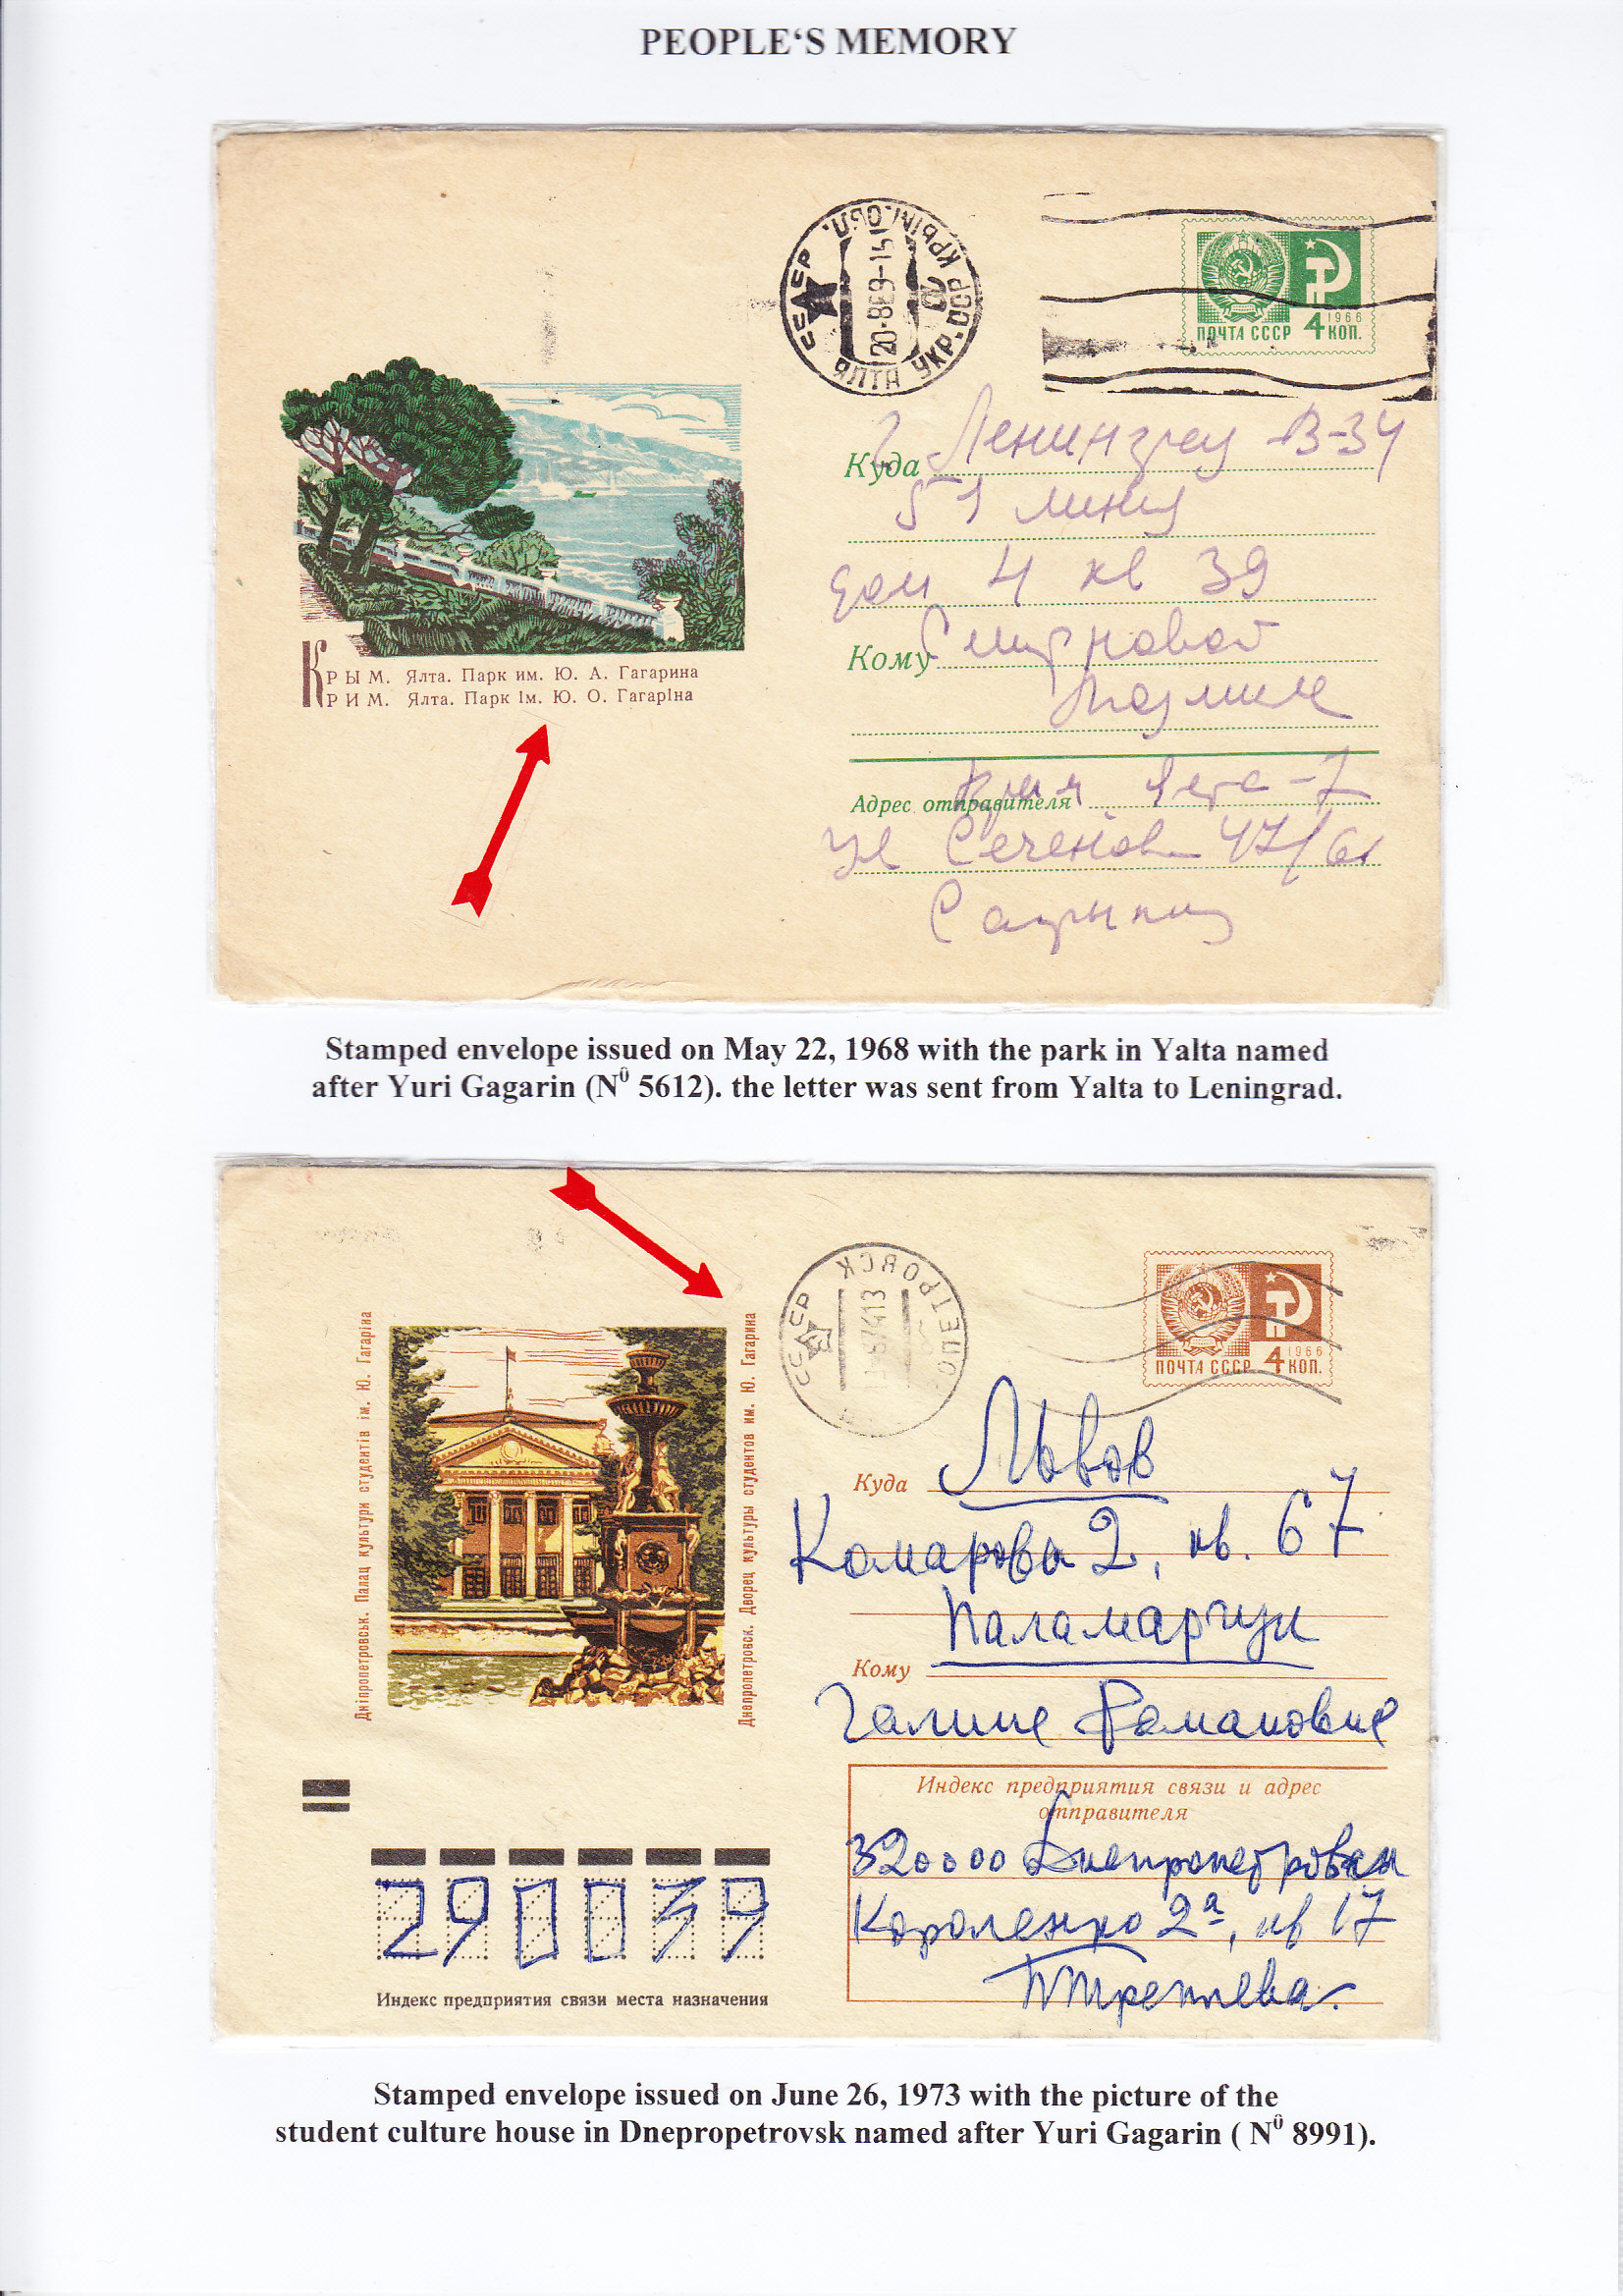 PEOPLE‘S MEMORY
СССР
ЯЛТА УКР. ССР КРЫМ. ОБЛ.
ПОЧТА СССР 4 1966 КОП.
Куда г Ленинград В-34
линия
дом 4 кв 39
Кому Смирновой
КРЫМ. Ялта. Парк им. Ю. А. Гагарина
КРИМ. Ялта. Парк ім. Ю. О. Гагаріна
Адрес отправителя Крым Ялта-7
ул 47/61
Stamped envelope issued on May 22, 1968 with the park in Yalta named
after Yuri Gagarin (N0 5612). the letter was sent from Yalta to Leningrad.
СССР
ПОЧТА СССР 4 1966 КОП.
Дніпропетровськ. Палац культури студентів ім. Ю. Гагаріна
Днепропетровск. Дворец культуры студентов им. Ю. Гагарина
Куда Львов
Комарова 2, кв. 67
Паламарчук
Кому
Галине Романовне
Индекс предприятия связи и адрес
отправителя
320000 Днепропетровск
Короленко 2а, кв 17
290039
Индекс предприятия связи места назначения
Stamped envelope issued on June 26, 1973 with the picture of the
student culture house in Dnepropetrovsk named after Yuri Gagarin ( N0 8991).